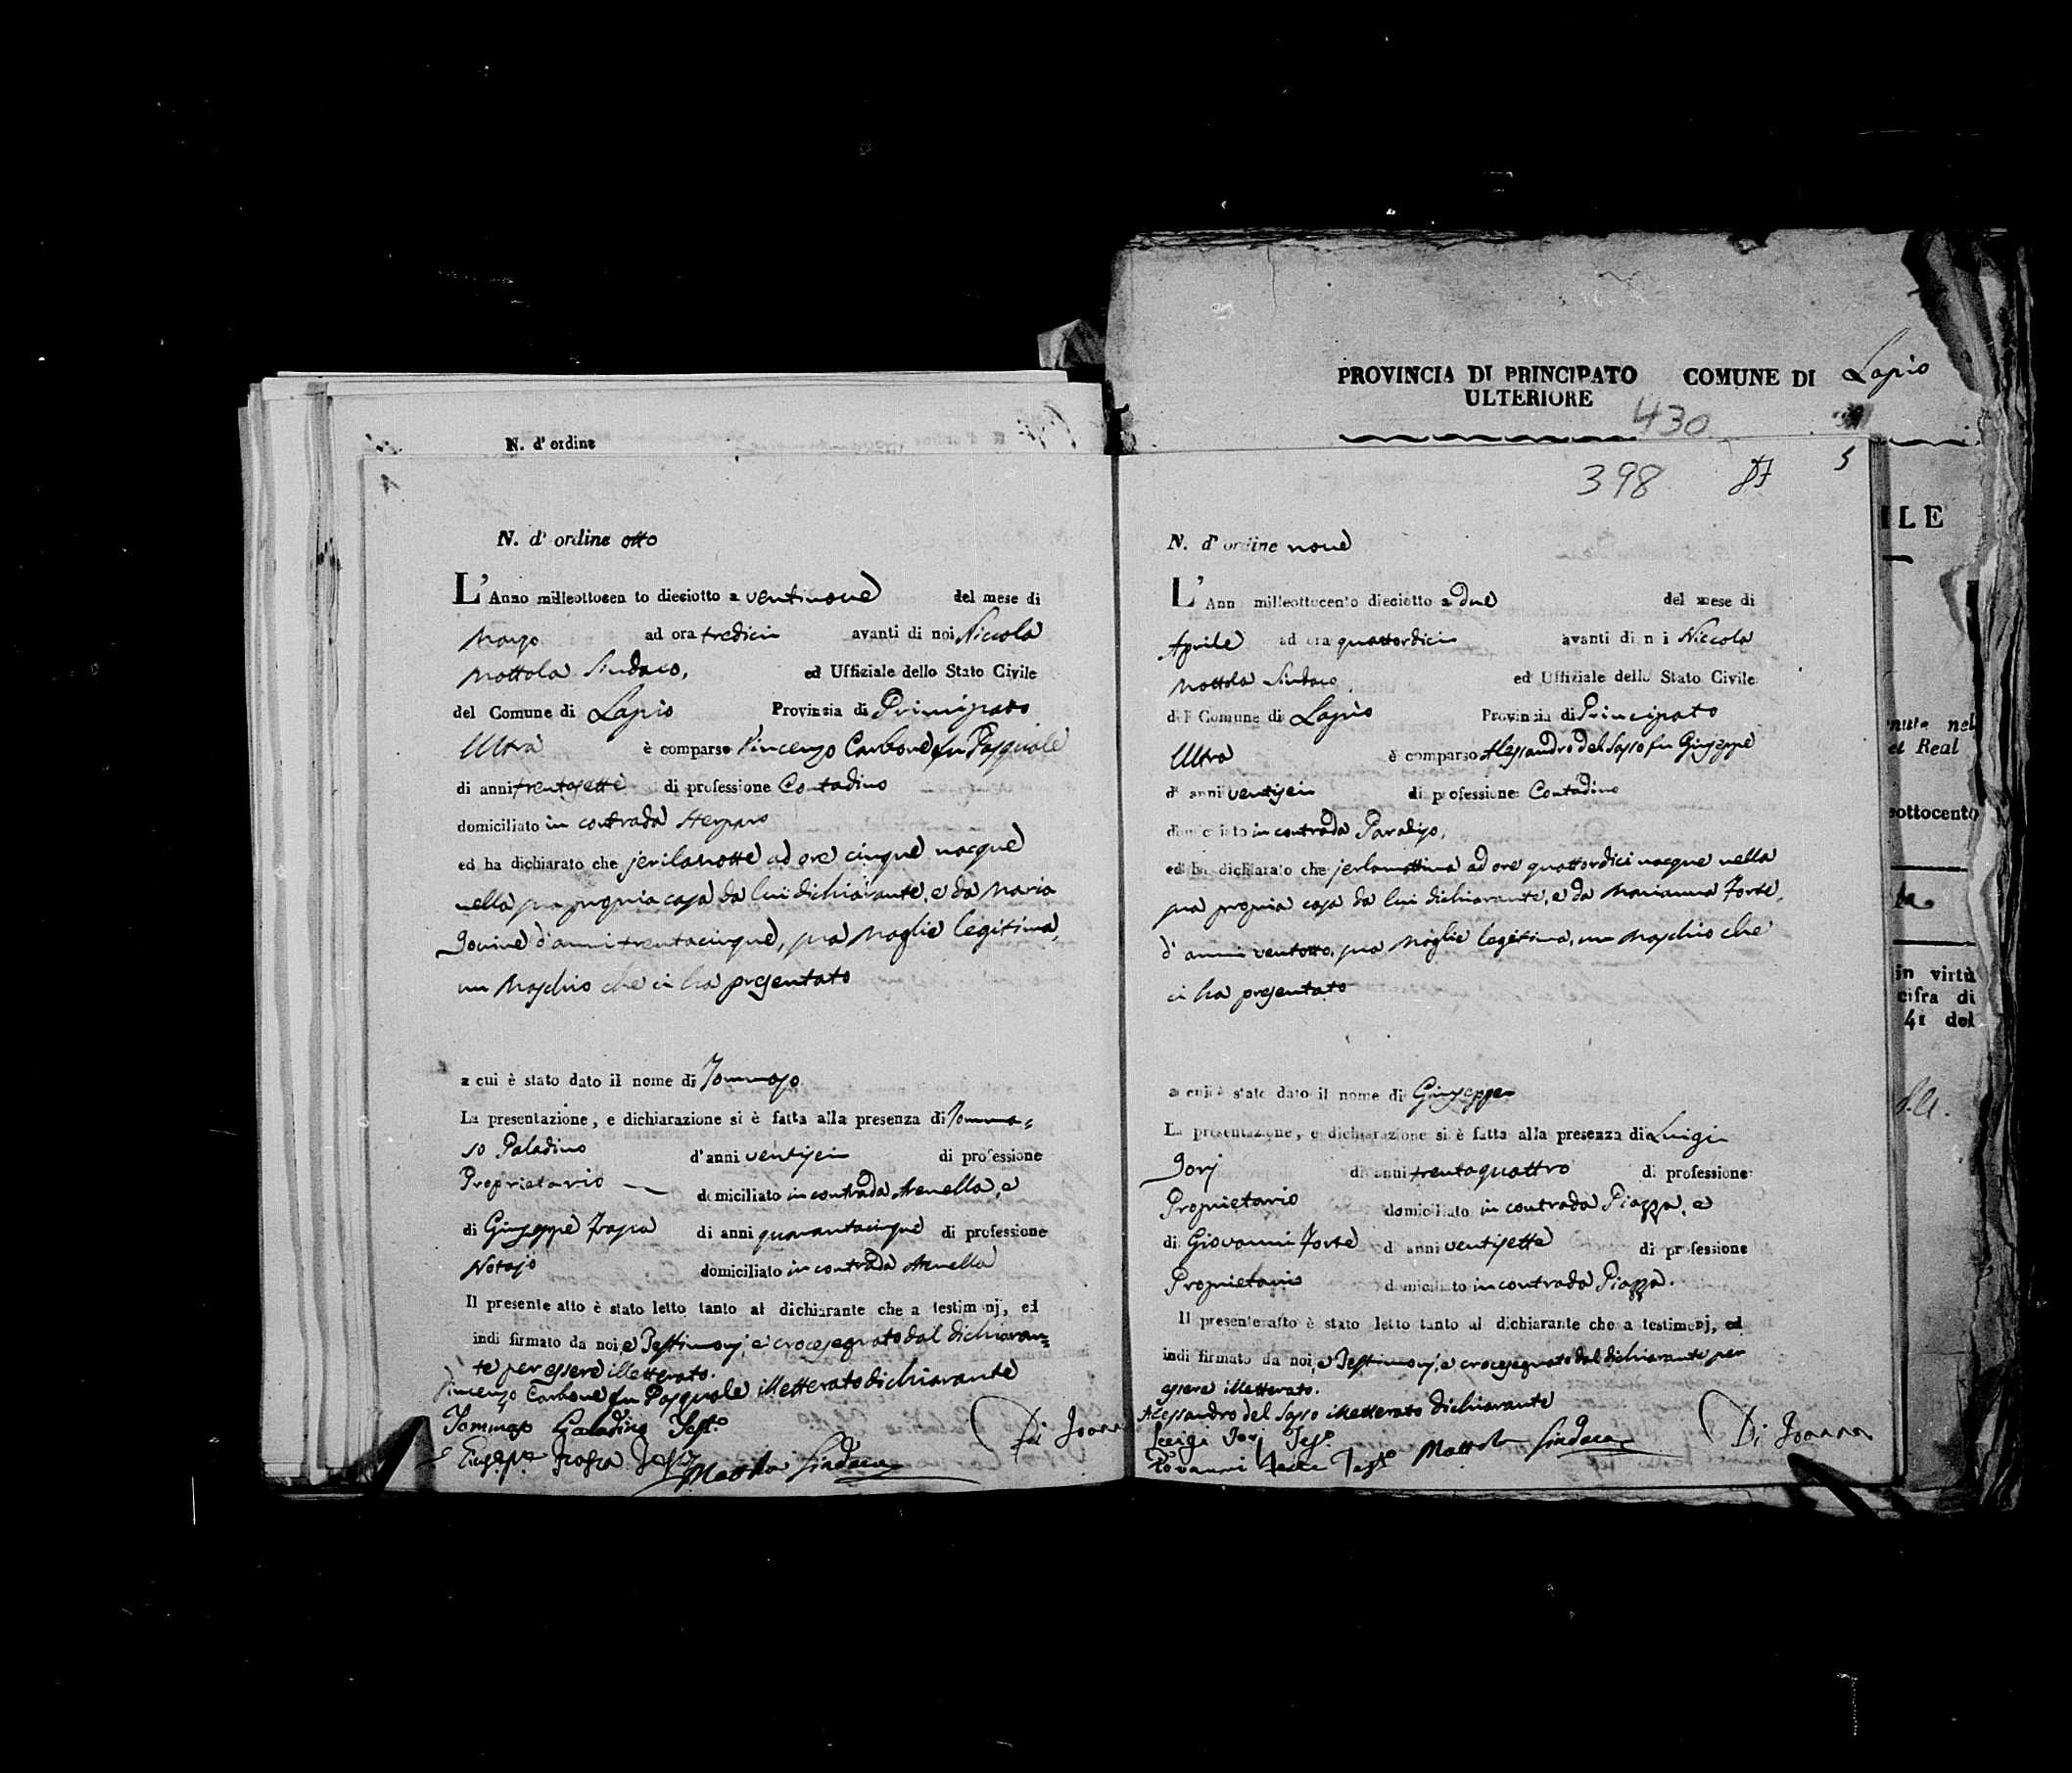 N. d' ordine
N. d' ordine otto
L' Anno milleottocen to dieciotto a ventinove del mese di
Marzo ad ora tredici avanti di noi Niccola
Mottola Sindaco, ed Uffiziale dello Stato Civile
del Comune di Lapio Provincia di Principato
Ultra è comparso Vincenzo Carbone fu Pasquale
di anni trentasette di professione Contadino
domiciliato in contrada Sterparo
ed ha dichiarato che jerilanotte ad ore cinque nacque
nella sua propria casa da lui dichiarante, e da Maria
Jovine d'anni trentacinque, sua Moglie legitima,
un Maschio che ci ha presentato
a cui è stato dato il nome di Tommaso
La presentazione, e dichiarazione si è fatta alla presenza di Tomma=
so Paladino d'anni ventisei di professione
Proprietario domiciliato in contrada Arenella, e
di Giuseppe Trasia di anni quarantacinque di professione
Notajo domiciliato in contrada Arenella
Il presente atto è stato letto tanto al dichiarante che a testimonj, ed
indi firmato da noi, e Testimonj, e crocesegnato dal dichiaran=
te per essere illetterato.
Vincenzo Carbone fu Pasquale illetterato dichiarante
Tommaso Paladino Testo
Giuseppe Trasia Testo Mottola Sindaco Di Joanna
PROVINCIA DI PRINCIPATO COMUNE DI Lapio
ULTERIORE
430
398 5
N. d' ordine nove
L' Ann milleottocento dieciotto a due del mese di
Aprile ad ora quattordici avanti di n i Niccola
Mottola Sindaco ed Uffiziale dello Stato Civile
del Comune di Lapio Provincia di Principato
Ultra è comparso Alessandro del Sasso fu Giuseppe
di anni ventisei di professione Contadino
domiciliato in contrada Paradiso,
ed ha dichiarato che jerlamattina ad ore quattordici nacque nella
sua propria casa da lui dichiarante, e da Marianna Forte,
d'anni ventotto, sua Moglie legitima, un Maschio che
ci ha presentato
a cui è stato dato il nome di Giuseppe
La presentazione, e dichiarazione si è fatta alla presenza di Luigi
Jorj di anni trentaquattro di professione
Proprietario domiciliato in contrada Piazza, e
di Giovanni Forte di anni ventisette di professione
Proprietario domiciliato in contrada Piazza.
Il presente atto è stato letto tanto al dichiarante che a testimonj, ed
indi firmato da noi, e Testimonj, e crocesegnato dal dichiarante per
essere illetterato.
Alessandro del Sasso illetterato dichiarante
Luigi Jorj Testo
Giovanni Forte Testo Mottola Sindaco Di Joanna
ILE
nute nel
el Real
sottocento
in virtù
cifra di
41 del